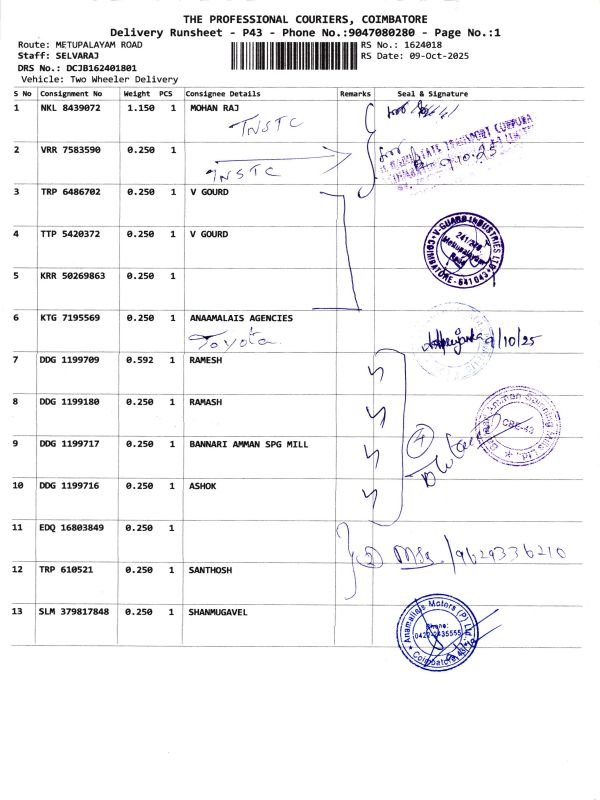 THE PROFESSIONAL COURIERS, COIMBATORE
Delivery Runsheet - P43 - Phone No.:9047080280 - Page No.:1
Route: METUPALAYAM ROAD
RS No.: 1624018
Staff: SELVARAJ
RS Date: 09-Oct-2025
DRS No.: DCJB162401801
Vehicle: Two Wheeler Delivery
S No Consignment No Weight PCS Consignee Details Remarks Seal & Signature
1 NKL 8439072 1.150 1 MOHAN RAJ
TNSTC
2 VRR 7583590 0.250 1
TNSTC
9.10.25
3 TRP 6486702 0.250 1 V GOURD
4 TTP 5420372 0.250 1 V GOURD
V-GUARD INDUSTRIES LTD
241/248,
Metupalayam
Road
COIMBATORE - 641043
5 KRR 50269863 0.250 1
6 KTG 7195569 0.250 1 ANAAMALAIS AGENCIES
Toyota
9/10/25
7 DDG 1199709 0.592 1 RAMESH
8 DDG 1199180 0.250 1 RAMASH
CBE-43
4
9 DDG 1199717 0.250 1 BANNARI AMMAN SPG MILL
10 DDG 1199716 0.250 1 ASHOK
11 EDQ 16803849 0.250 1
2 /9629336210
12 TRP 610521 0.250 1 SANTHOSH
13 SLM 379817848 0.250 1 SHANMUGAVEL
Anamallais Motors (P) Ltd
Phone:
0422-2435555
Coimbatore